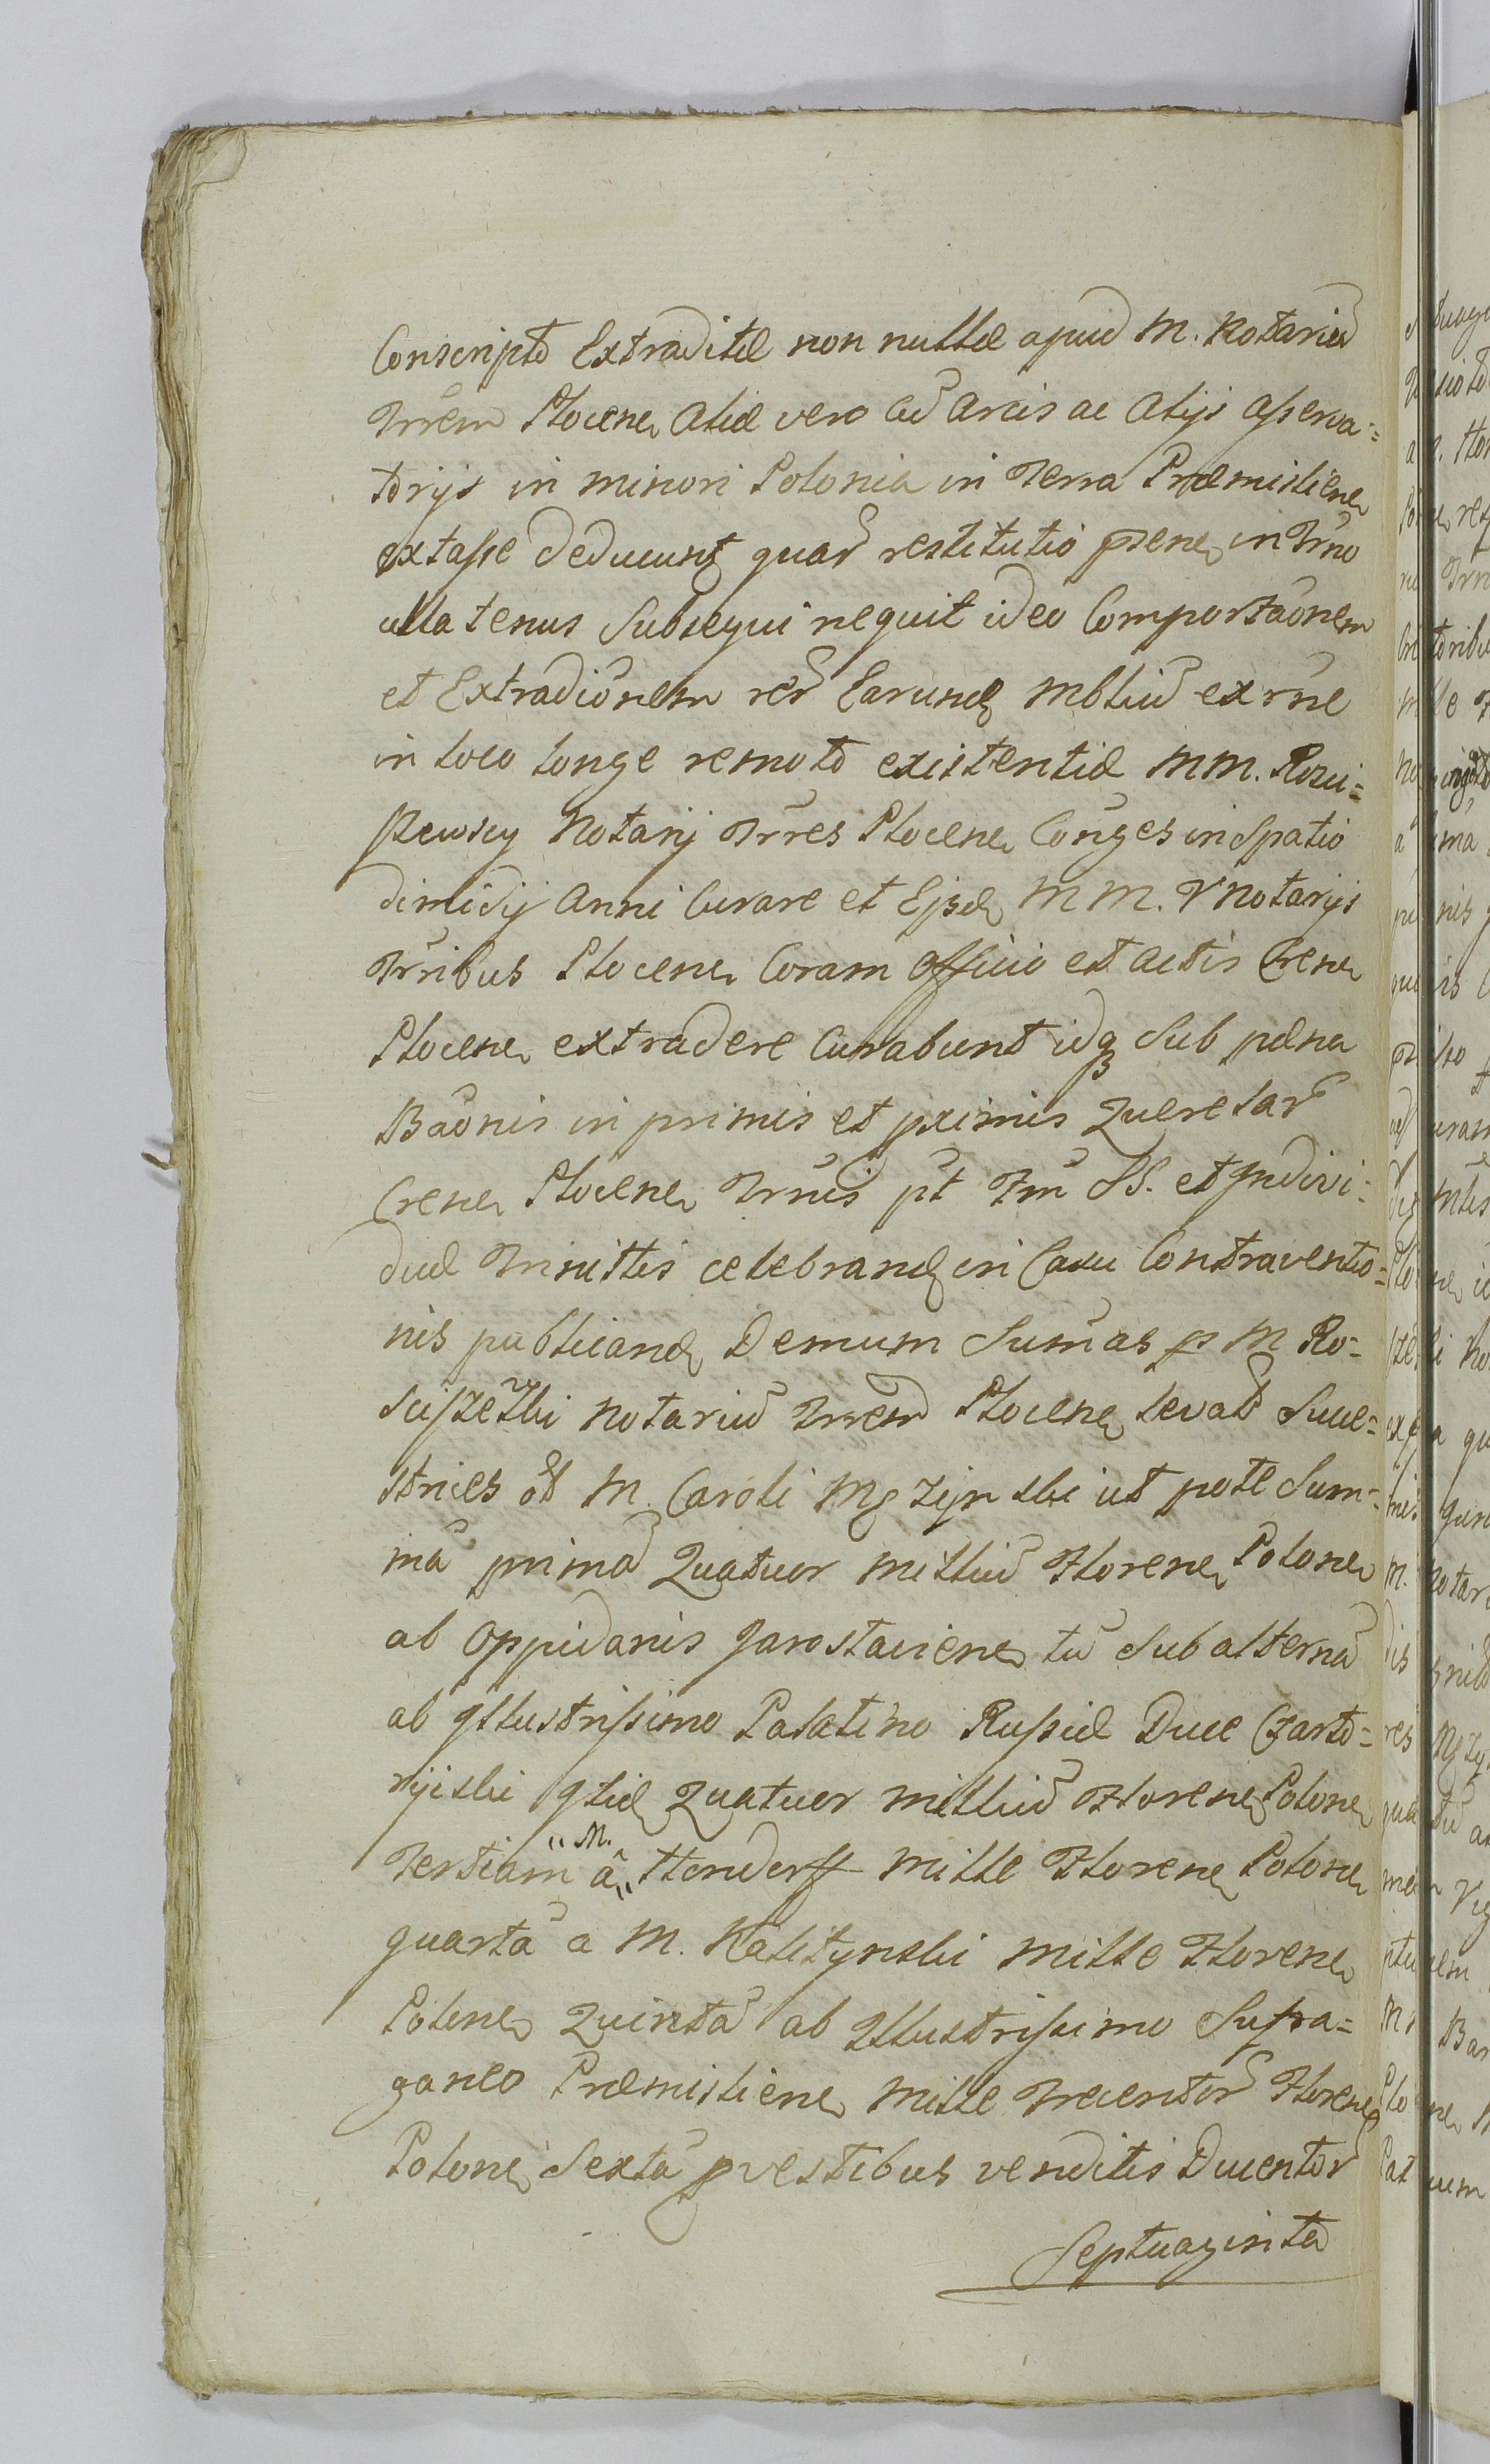 Conscripto Extraditæ non nullæ apud M. Notariū
Trrem Plocen. Aliæ vero cū Arcis ac Alijs asserva=
torijs in minori Polonia in Terra Præmislien.
extasse deducunt quar̄ restitutio p̄sen. in Trn̄o
ullatenus Subsequi nequit ideo Comportaōnem
et Extradiōnem rer̄ Earund. mbliū ex rn̄e
in loco longe remoto existentiæ MM. Rosci=
szewscy Notarij Trr̄es Plocen. Con̄ges in Spatio
dimidij Anni Curare et Ejsd. MM. Notarijs
Trr̄ibus Plocen. Coram Officio et Actis Cren.
Plocen. extradere Curabunt idq₃ Sub pæna
Baōnis in primis et p̄ximis Querelar̄
Cren. Plocen. Trn̄is p̄t Fm̄ SS. et Indivi=
duæ Trinittis celebrand. in Casu Contraventio=
nis publicand. Demum Sum̄as p M Ro=
sciszewski Notariū Trrem Plocen. levat. Succe=
strices olī M. Caroli Mężynski ut pote Sum=
mā primā Quatuor milliū Floren. Polon.
ab Oppidanis Jaroslavien. tū Sub alternā
ab Illustrissimo Palatino Russiæ Duce Czarto=
ryiski Itid. Quatuor milliū Floren. Polon.
Tertiam â „M.„ Henderff mille Floren. Polon.
quartā a M. Kalitynski mille Floren.
Polon. Quintā ab Illustrissimo Sufra=
ganeo Præmislien. mille Trecentor̄ Floren.
Polon. Sextā p vestibus venditis Ducentor̄
Septuaginta